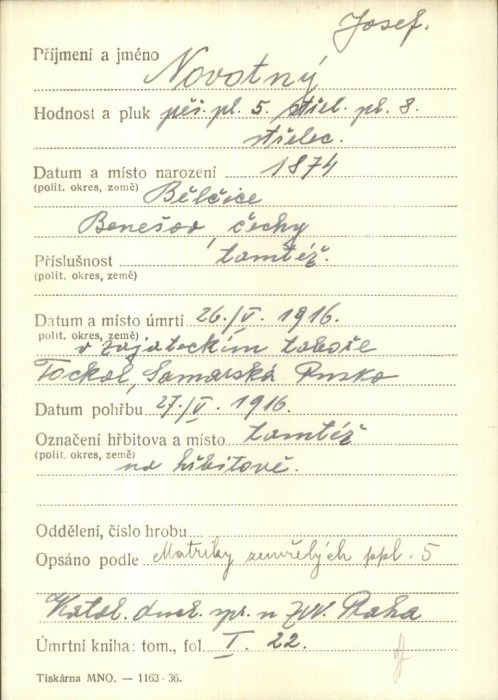 Josef.
Příjmení a jméno Novotný
Hodnost a pluk pěš. pl. 5. /střel. pl. 8.
střelec.
Datum a místo narození 1874
(polit. okres, země) Bělčice
Benešov, Čechy
Příslušnost tamtéž.
(polit. okres, země)
Datum a místo úmrtí 26./V. 1916.
(polit. okres, země) v zajateckém táboře
Tockoe, Samarská Rusko
Datum pohřbu 27./V. 1916.
Označení hřbitova a místo tamtéž
(polit. okres, země) na hřbitově.
Oddělení, číslo hrobu
Opsáno podle Matriky zemřelých ppl. 5
Katol. duch. spr. n ZVV. Praha
Úmrtní kniha: tom., fol. I. 22.
Tiskárna MNO. — 1163 - 36.